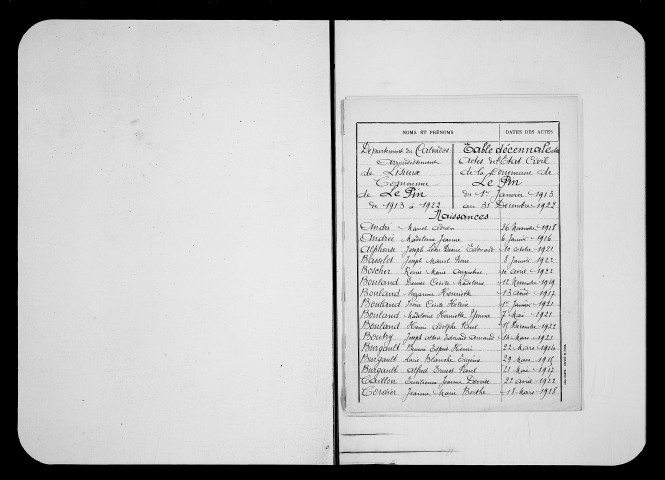 NOMS ET PRÉNOMS DATES DES ACTES
Département du Calvados
Arrondissement
de Lisieux
Commune
de Le Pin
de 1913 à 1922
Table décennale des
Actes de l'État Civil
de la Commune de
Le Pin
du 1er Janvier 1913
au 31 Décembre 1922
Naissances
André Marcel Adrien 26 Novembre 1918
Andrée Madeleine Jeanne 6 Janvier 1916
Alphonse Joseph Léon Edouard 30 octobre 1921
Basselot Joseph Marcel 8 Janvier 1922
Boscher Renée Marie Augustine 10 avril 1922
Bouland Denise Cécile Madeleine 12 Novembre 1919
Bouland Suzanne Henriette 13 août 1917
Bouland Cécile 1er Janvier 1921
Bouland Madeleine Henriette Yvonne 7 Mai 1921
Bouland Henri Adolphe Paul 15 Décembre 1922
Boutry Joseph Edouard Armand 14 Mars 1921
Burgault Henri 22 Mars 1914
Burgault Blanche Eugénie 29 Mars 1915
Burgault Alfred Ernest Paul 21 Mai 1917
Caillon Emilienne Jeanne Denise 22 avril 1922
Cordier Jeanne Marie Berthe 18 Mars 1918